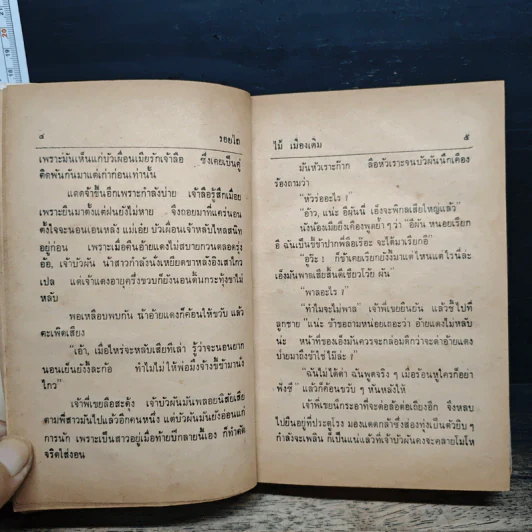 ๘
รอยไถ
เพราะมันเห็นแก่บัวเผื่อนเมียรักเจ้าลือ ซึ่งเคยเป็นคู่
คิดพันกันมาแต่เก่าก่อนเท่านั้น
แดดจ้าขึ้นอีกเพราะกำลังบ่าย เจ้าลือรู้สึกเมื่อย
เพราะยืนมาตั้งแต่ฝนยังไม่หาย จึงถอยมาที่แคร่นอน
ตั้งใจจะนอนเอนหลัง แม่เอ๋ย บัวเผื่อนเจ้าหลับไหลสนิท
อยู่ก่อน เพราะเมื่อคืนอ้ายแดงไม่สบายกวนตลอดรุ่ง
อ้อ, เจ้าบัวผัน น้าสาวกำลังนั่งเหยียดขาหลังอิงเสาไกว
เปล แต่เจ้าแดงอายุครึ่งขวบก็ยังนอนดิ้นกระทุ้งขาไม่
หลับ
พอเหลือบพบกัน น้าอ้ายแดงก็ค้อนให้ขวับ แล้ว
ตะเพิดเสียง
"เอ้า, เมื่อไหร่จะหลับเสียทีเล่า รู้ว่าจะนอนยาก
นอนเย็นยังงี้ละก้อ ทำไมไม่ให้พ่อมึงจ้างขี้ข้ามานั่ง
ไกว"
เจ้าพี่เขยลือสะดุ้ง เจ้าบัวผันมันพลอยนิสัยเสีย
ตามพี่สาวมันไปแล้วอีกคนหนึ่ง แต่บัวผันมันยังอ่อนแก่
การนัก เพราะเป็นสาวอยู่เมื่อท้ายปีกลายนี้เอง ก็ทำดัด
จริตใส่งอน
ไม้ เมืองเดิม
๕
มันหัวเราะก๊าก ลือหัวเราะจนบัวผันนึกเคือง
ร้องถามว่า
"หัวร่ออะไร !"
"อ้าว, แน่ะ อีผันนี่ เอ็งจะพิกลเสียใหญ่แล้ว"
นังน้องเมียยิ่งเคืองพูดย้ำ ๆ ว่า "อีผัน หนอยเรียก
อี ฉันเป็นขี้ข้าปากพี่ลือเรอะ จะได้มาเรียกอี"
"อุ๊วะ ! ก็ข้าเคยเรียกยังงี้มาแต่ไหนแต่ไรนี่ล่ะ
เอ็งมันพาลเสียสิ้นดีเชียวโว้ย ผัน"
"พาลอะไร !"
"ทำไมจะไม่พาล" เจ้าพี่เขยยืนยัน แล้วชี้ไปที่
ลูกชาย "แน่ะ ข้าขอถามหน่อยเถอะว่า อ้ายแดงไม่หลับ
น่ะ หน้าที่ของเอ็งมันควรจะกล่อมดีกว่าจะด่าอ้ายแดง
บ่ายมาถึงรำใช้ ไม๊ล่ะ !"
"ฉันไม่ได้ด่า ฉันพูดจริง ๆ เมื่อร้อนหูใครก็อย่า
ฟังซี" แล้วก็ค้อนขวับ ๆ หันหลังให้
เจ้าพี่เขยนึกระอาที่จะต่อล้อต่อเถียงอีก จึงหลบ
ไปยืนอยู่ที่ประตูโรง มองแดดกล้าซึ่งส่องทุ่งเป็นตัวยิบ ๆ
กำลังจะเพลิน ก็เป็นแน่แล้วที่เจ้าบัวผันคงจะคลายโมโห